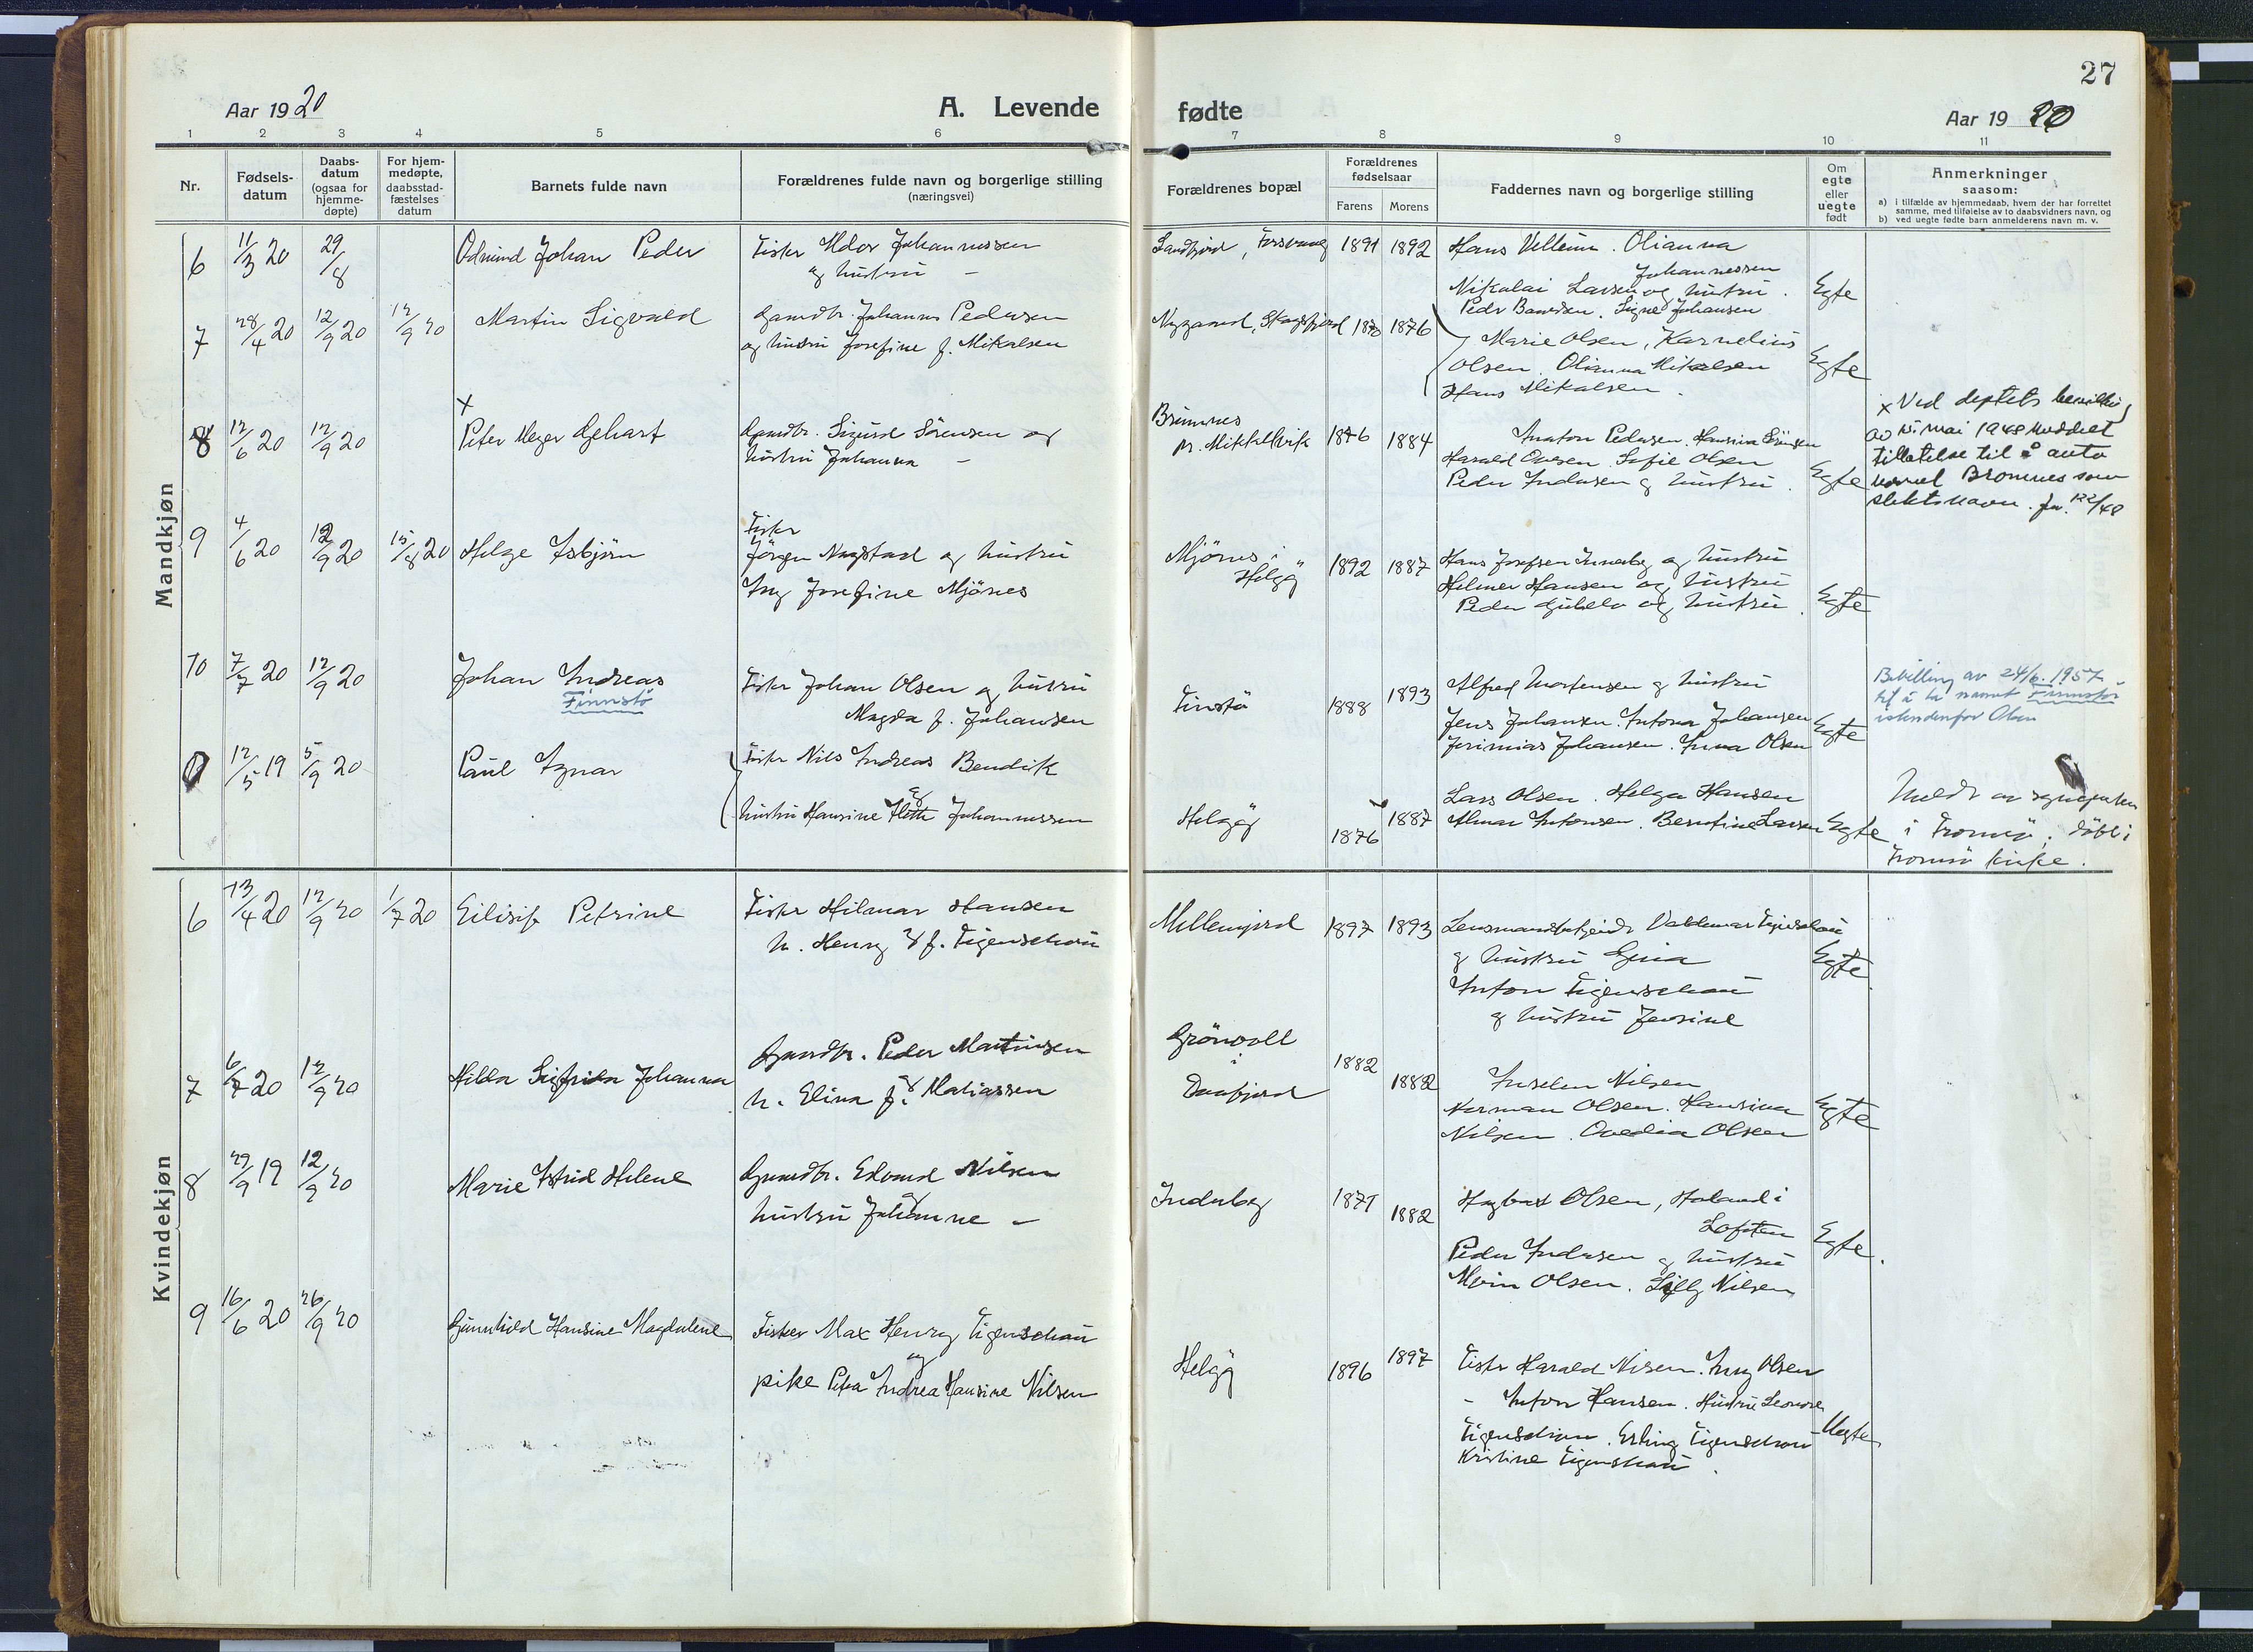 27
Aar 1920
A. Levende
fødte
Aar 1920
1 2 3 4 5 6 7 8 9 10 11
Nr.
Fødsels-
datum
Daabs-
datum
(ogsaa for
hjemme-
døpte)
For hjem-
medøpte,
daabsstad-
fæstelses
datum
Barnets fulde navn
Forældrenes fulde navn og borgerlige stilling
(næringsvei)
Forældrenes bopæl
Forældrenes
fødselsaar
Farens
Morens
Faddernes navn og borgerlige stilling
Om
egte
eller
uegte
født
Anmerkninger
saasom:
a) i tilfælde av hjemmedaab, hvem der har forrettet
samme, med tilføielse av to daabsvidners navn, og
b) ved uegte fødte barn anmelderens navn m. v.
Mandkjøn
6 11/3 20 29/8 Johan Peder
Fisker Johannessen
og hustru -
1891 1892
Hans Olianna
Johannessen
Nikolai Larsen og hustru. Egte
Signe Johansen
7 28/4 20 12/9 20 12/9 20 Martin Sigvald
Gaardbr. Johannes Pedersen
og hustru Josefine f. Mikalsen
1876
Marie Olsen, Kornelius
Olsen. Olianna Mikalsen
Hans Mikalsen.
Egte
x
8 12/6 20 12/9 20 Peter Meyer Gjehart
Gaardbr. Sigurd Sörensen og
hustru Johanna -
1876 1884
Anton Pedersen.
Harald Sofie Olsen
Peder Andersen og hustru. Egte
x Ved deptets bevilling
av mai 1948 meddelt
tillatelse til å anta
navnet Bromnes som
slektsnavn. 122/48
9 4/6 20 12/9 20 15/8 20 Helge Asbjörn
Fisker
Jörgen Nygstad og hustru
Josefine Mjönes
Mjönes i
Helgöy
1892 1887
Hans Josefsen og hustru
Helmer Hansen og hustru
Peder og hustru. Egte
10 7/7 20 12/9 20 Johan Andreas
Finnstö
Fisker Johan Olsen og hustru
Magda f. Johansen
Finstö
1888 1893
Alfred Mortensen og hustru
Jens Johansen. Antona Johansen
Jerimias Johansen. Anna Olsen
Egte
Bevilling av 24/6. 1957
til å ta navnet Finnstø
istedenfor Olsen
0 12/5 19 5/9 20 Paul
Fisker Nils Andreas Bendik
og
hustru Hansine Johannessen
Helgöy
1876 1887
Lars Olsen. Helga Hansen
Antonsen. Larsen Egte
Meldt av sognepresten
i Tromsø. døbt i
Tromsø kirke.
Kvindekjøn
6 13/4 20 12/9 20 1/7 20 Eilisif Petrine
Fisker Hilmar Hansen
og
h. Henny f. Figenschau
1897 1893
Valdemar Figenschau
og hustru
Anton Figenschau
og hustru Jensine
Egte
7 6/7 20 12/9 20 Hilda Sigfrida Johanna
Gaardbr. Peder Martinsen
og
h. Elina f. Matiassen
Grönvoll
i
Danfjord
1882 1882
Nilsen
Norman Olsen. Hansina
Nilsen. Ovedia Olsen
Egte
8 29/9 19 12/9 20 Marie Astrid Helene
Gaardbr. Edvard Nilsen
og
hustru Johanne -
1871 1882
Olsen, i
Lofoten
Peder Andersen og hustru
Olsen. Lilly Nilsen
Egte.
9 16/6 20 26/9 20 Gunnhild Hansine Magdalene
Fisker Max Henry Figenschau
og
pike Petra Andrea Hansine Nilsen
Helgöy
1896 1897
Fisker Harald Nilsen. Olsen
- Anton Hansen. Hustru Leonore
Figenschau. Erling Figenschau
Kristine Figenschau.
Uegte